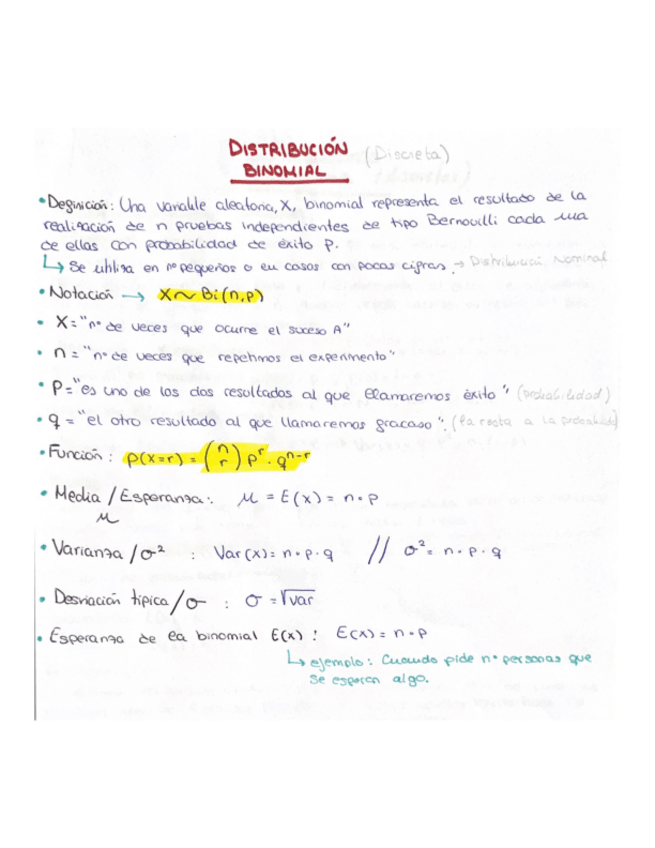 DISTRIBUCIÓN (Discreta)
BINOMIAL
• Definición: Una variable aleatoria, X, binomial representa el resultado de la
realización de n pruebas independientes de tipo Bernouilli cada una
de ellas con probabilidad de éxito P.
↳ Se utiliza en nº pequeños o en casos con pocas cifras. → Distribución Nominal
• Notación → X ~ Bi(n,p)
• X = "nº de veces que ocurre el suceso A"
• n = "nº de veces que repetimos el experimento"
• P = "es uno de los dos resultados al que llamaremos éxito" (probabilidad)
• q = "el otro resultado al que llamaremos fracaso". (la resta a la probabilidad)
• Función: p(x=r) = (n r) p^r · q^n-r
• Media / Esperanza: μ = E(x) = n · p
μ
• Varianza / σ² : Var (x) = n · p · q // σ² = n · p · q
• Desviación típica / σ : σ = √var
• Esperanza de la binomial E(x) : E(x) = n · p
↳ ejemplo: Cuando pide nº personas que
se esperan algo.